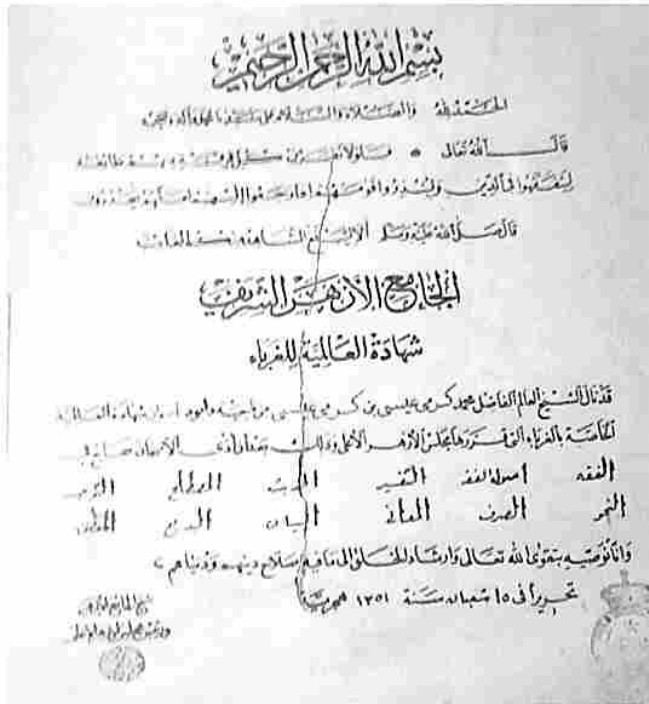 بسم الله الرحمن الرحيم
الحمد لله والصلاة والسلام على سيدنا محمد وآله وصحبه
قال الله تعالى * فلولا نفر من كل فرقة منهم طائفة
ليتفقهوا في الدين ولينذروا قومهم إذا رجعوا إليهم لعلهم يحذرون
قال صلى الله عليه وسلم ألا ليبلغ الشاهد منكم الغائب
الجامع الأزهر الشريف
شهادة العالمية للغرباء
قد نال الشيخ العالم الفاضل محمد كرمي عيسى بن كرمي عيسى من ناحية شهادة العالمية
الخاصة بالغرباء التي قررها مجلس الأزهر الأعلى وذلك بعد أن أدى الامتحان
الفقه أصول الفقه التفسير الحديث المصطلح التوحيد
النحو الصرف المعاني البيان البديع المنطق
وإنا نوصيه بتقوى الله تعالى وإرشاد الخلق إلى ما فيه صلاح دينهم ودنياهم
تحريرا في ١٥ شعبان سنة ١٣٥١ هجرية
شيخ الجامع الأزهر